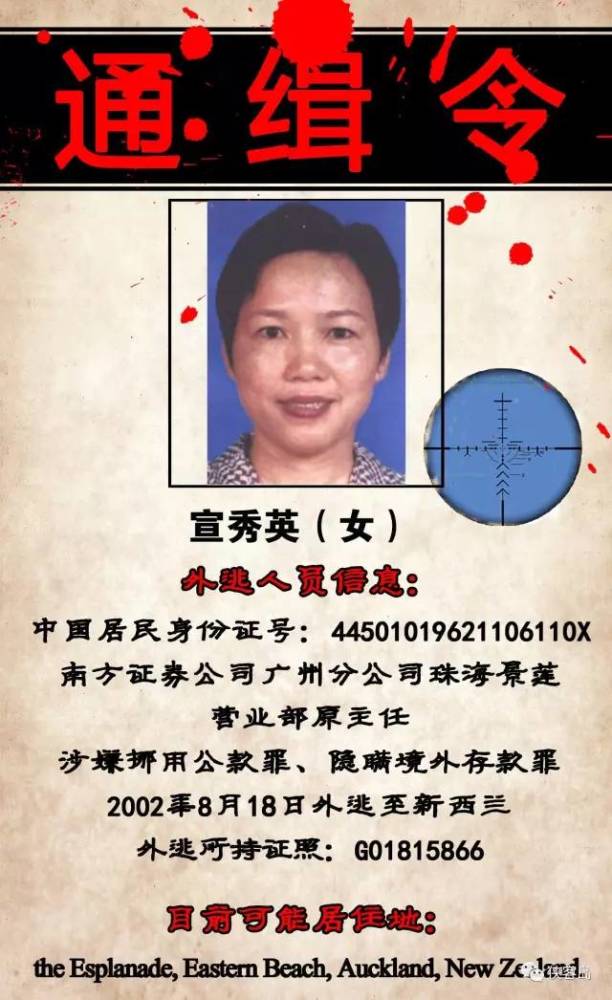 通缉令
宣秀英（女）
外逃人员信息：
中国居民身份证号：44501019621106110X
南方证券公司广州分公司珠海景莲
营业部原主任
涉嫌挪用公款罪、隐瞒境外存款罪
2002年8月18日外逃至新西兰
外逃所持证照：G01815866
目前可能居住地：
the Esplanade, Eastern Beach, Auckland, New Zealand
侠客岛